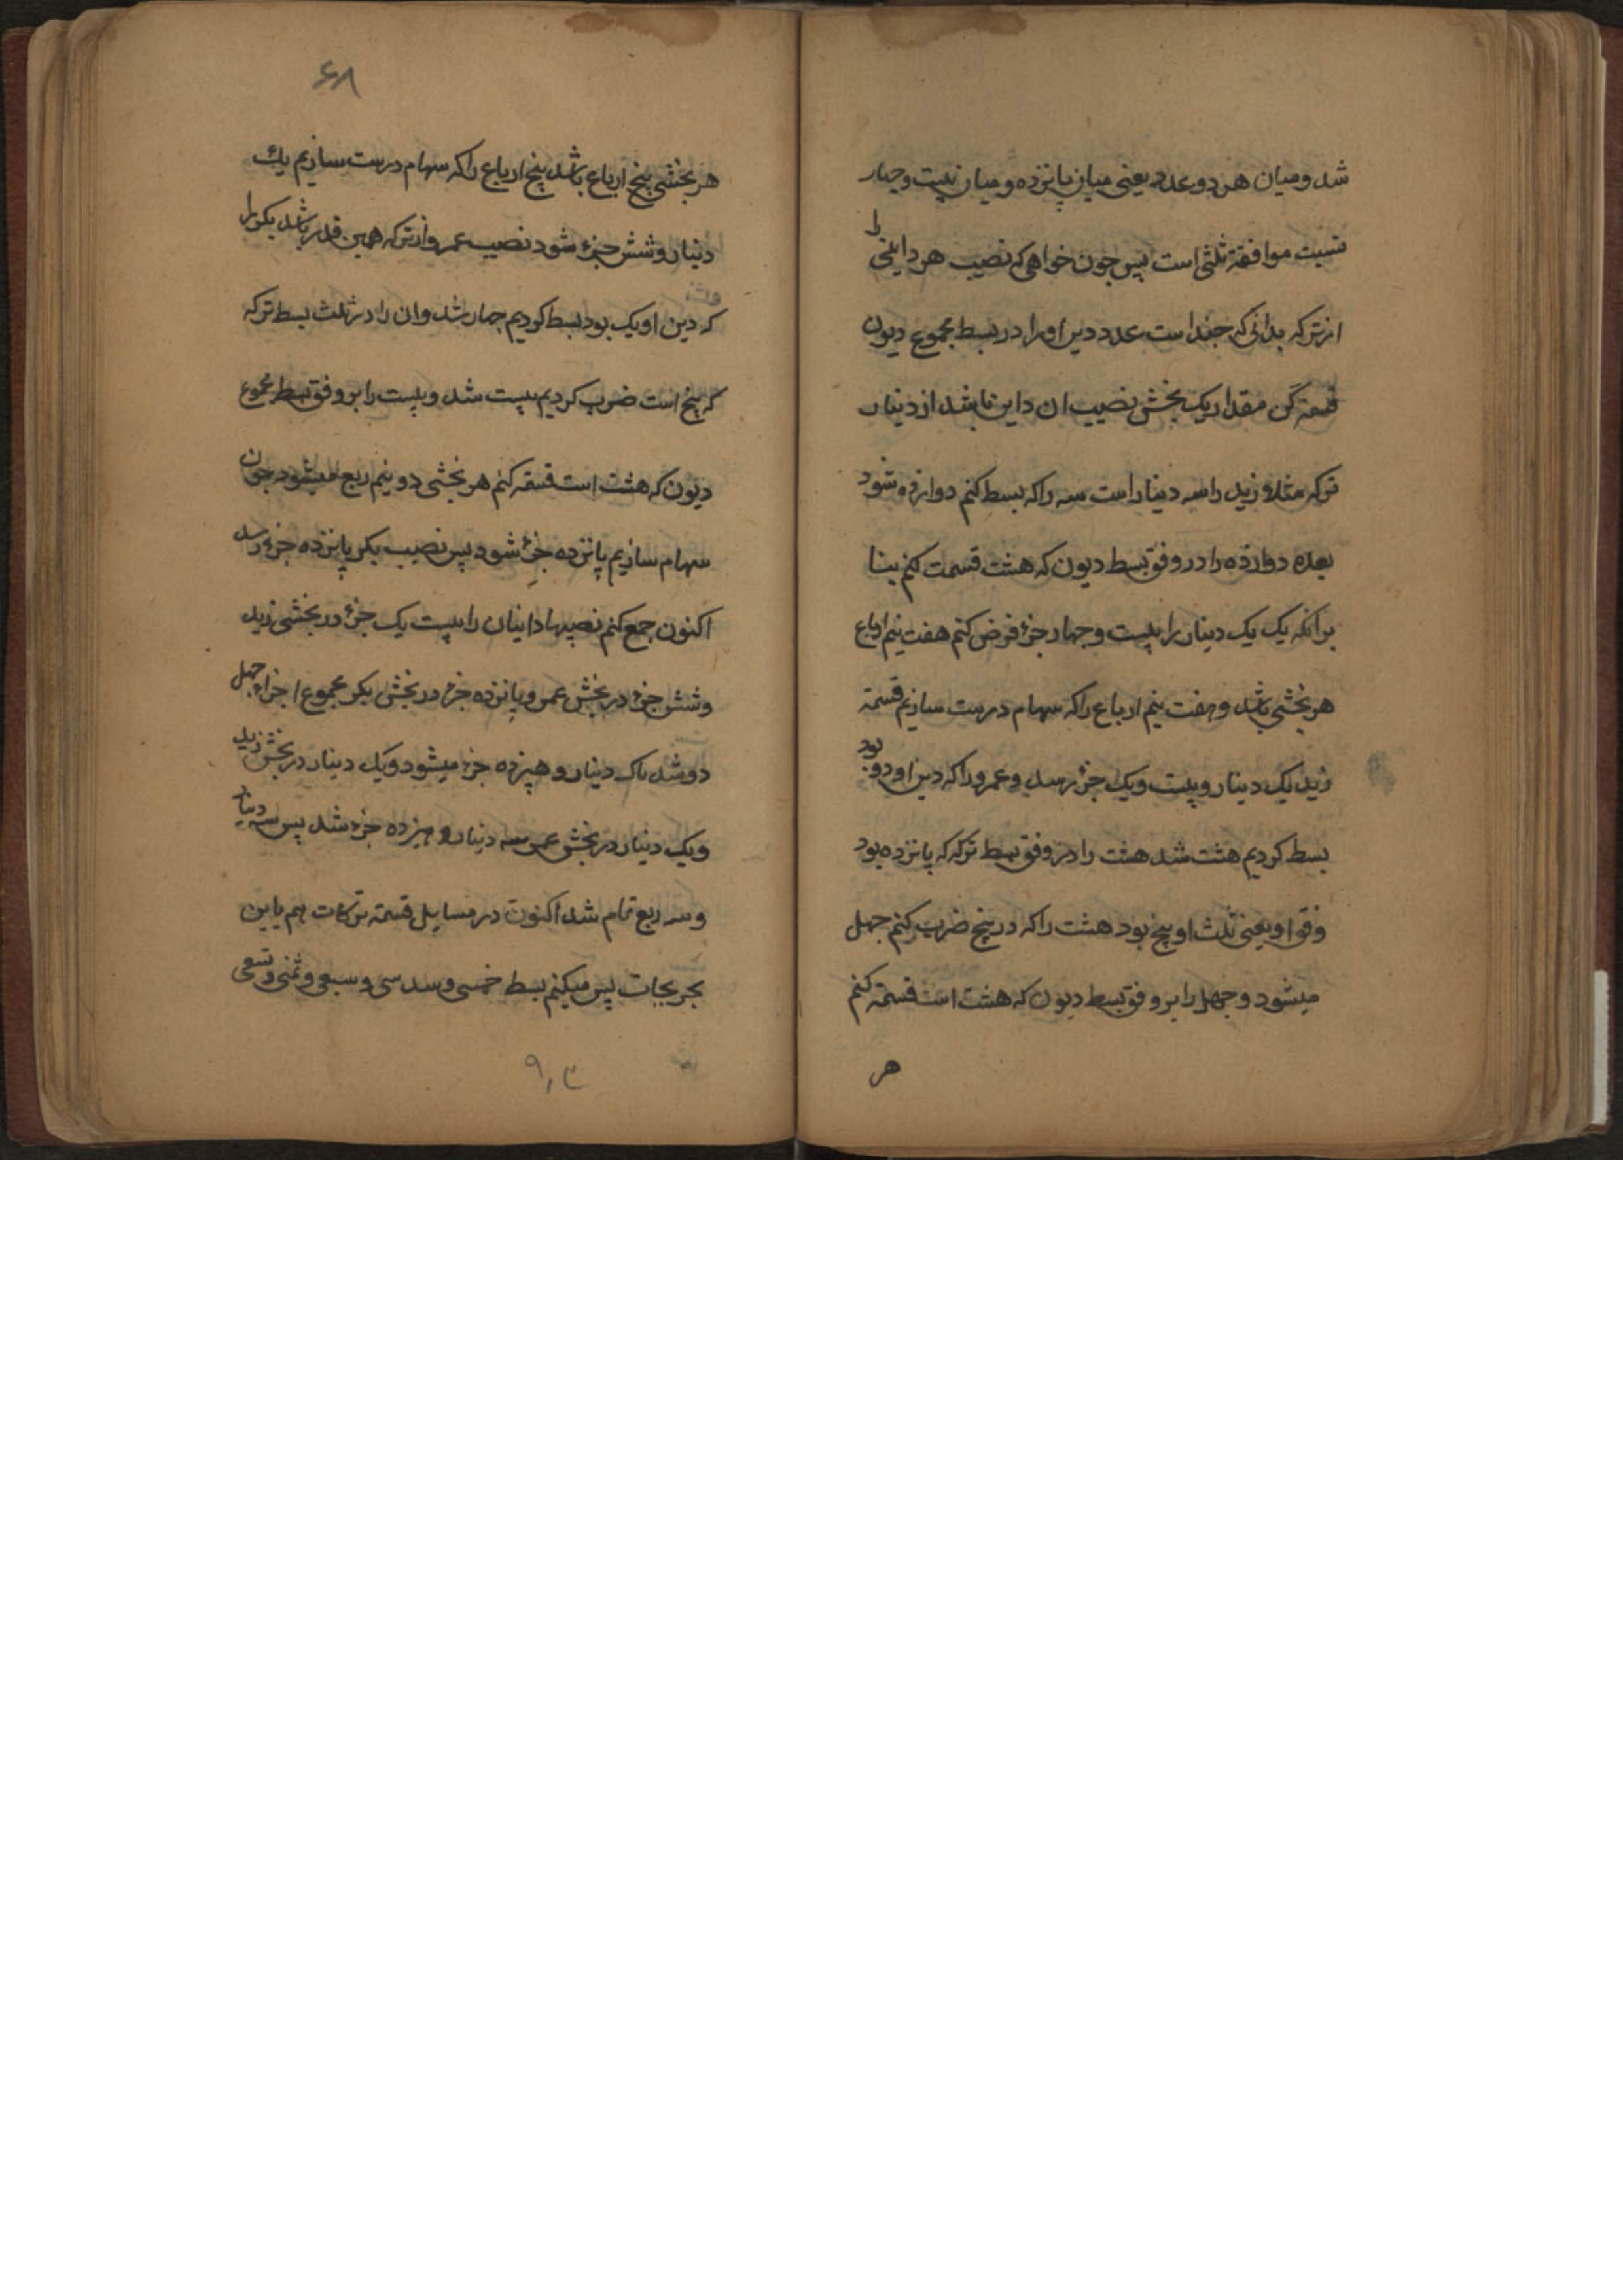 شد و میان هر دو عدد یعنی میان پانزده و میان بیست و چهار
نسبت موافقة ثلثی است پس جون خواهی که نصیب هر داینی را
از ترکه بدانی که جند است عدد دین او را در بسط مجموع دیون
قسمة کن مقدار یک بخش نصیب ان داین باشد از دینار
ترکه مثلا زید را سه دینار است سه را که بسط کنم دوازده شود
بعده دوازده را در وفق بسط دیون که هشت قسمت کنم بنا
برانکه یک یک دینار را بیست و چهار جزء فرض کنم هفت نیم ارباع
هر بخشی باشد و هفت نیم ارباع را که سهام درست سازیم قسمة
زید یک دینار و بیست و یک جزء رسد و عمرو را که دین او دو بود
بسط کردیم هشت شد هشت را در وفق بسط ترکه که پانزده بود
وفق او یعنی ثلث او پنج بود هشت را که در پنج ضرب کنم جهل
میشود و جهل را بر وفق بسط دیون که هشت است قسمة کنم
هر
۶۸
هر بخشی پنج ارباع باشد پنج ارباع را که سهام درست سازیم یک
دینار و شش جزء شود نصیب عمرو از ترکه همین قدر باشد بکر را
که دین او یک بود بسط کردیم چهار شد و ان را در ثلث بسط ترکه
که پنج است ضرب کردیم بیست شد و بیست را بر وفق بسط مجموع
دیون که هشت است قسمة کنم هر بخشی دو نیم ربع میشود جون
سهام سازیم پانزده جزء شود پس نصیب بکر پانزده جزء رسد
اکنون جمع کنم نصیبها داینان را بیست یک جزء در بخشی زید
و شش جزء در بخش عمرو پانزده جزء در بخش بکر مجموع اجزاء جهل
دو شد یک دینار و هیزده جزء میشود و یک دینار در بخش زید
و یک دینار در بخش عمر سه دینار و هیزده جزء شد پس سه دینار
و سه ربع تمام شد اکنون در مسایل قسمة ترکات هم باین
بخریجات پس میکنم بسط خمسی و سدسی و سبعی و ثمنی و تسعی